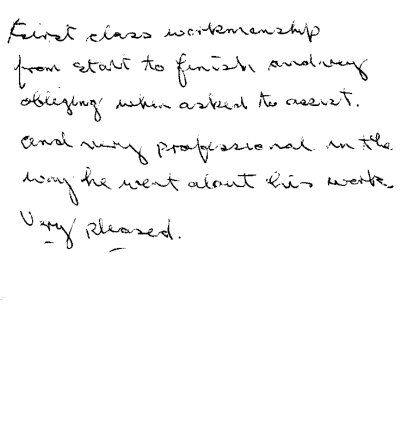 First class workmanship
from start to finish and very
obliging when asked to assist.
and very professional in the
way he went about his work.
Very pleased.